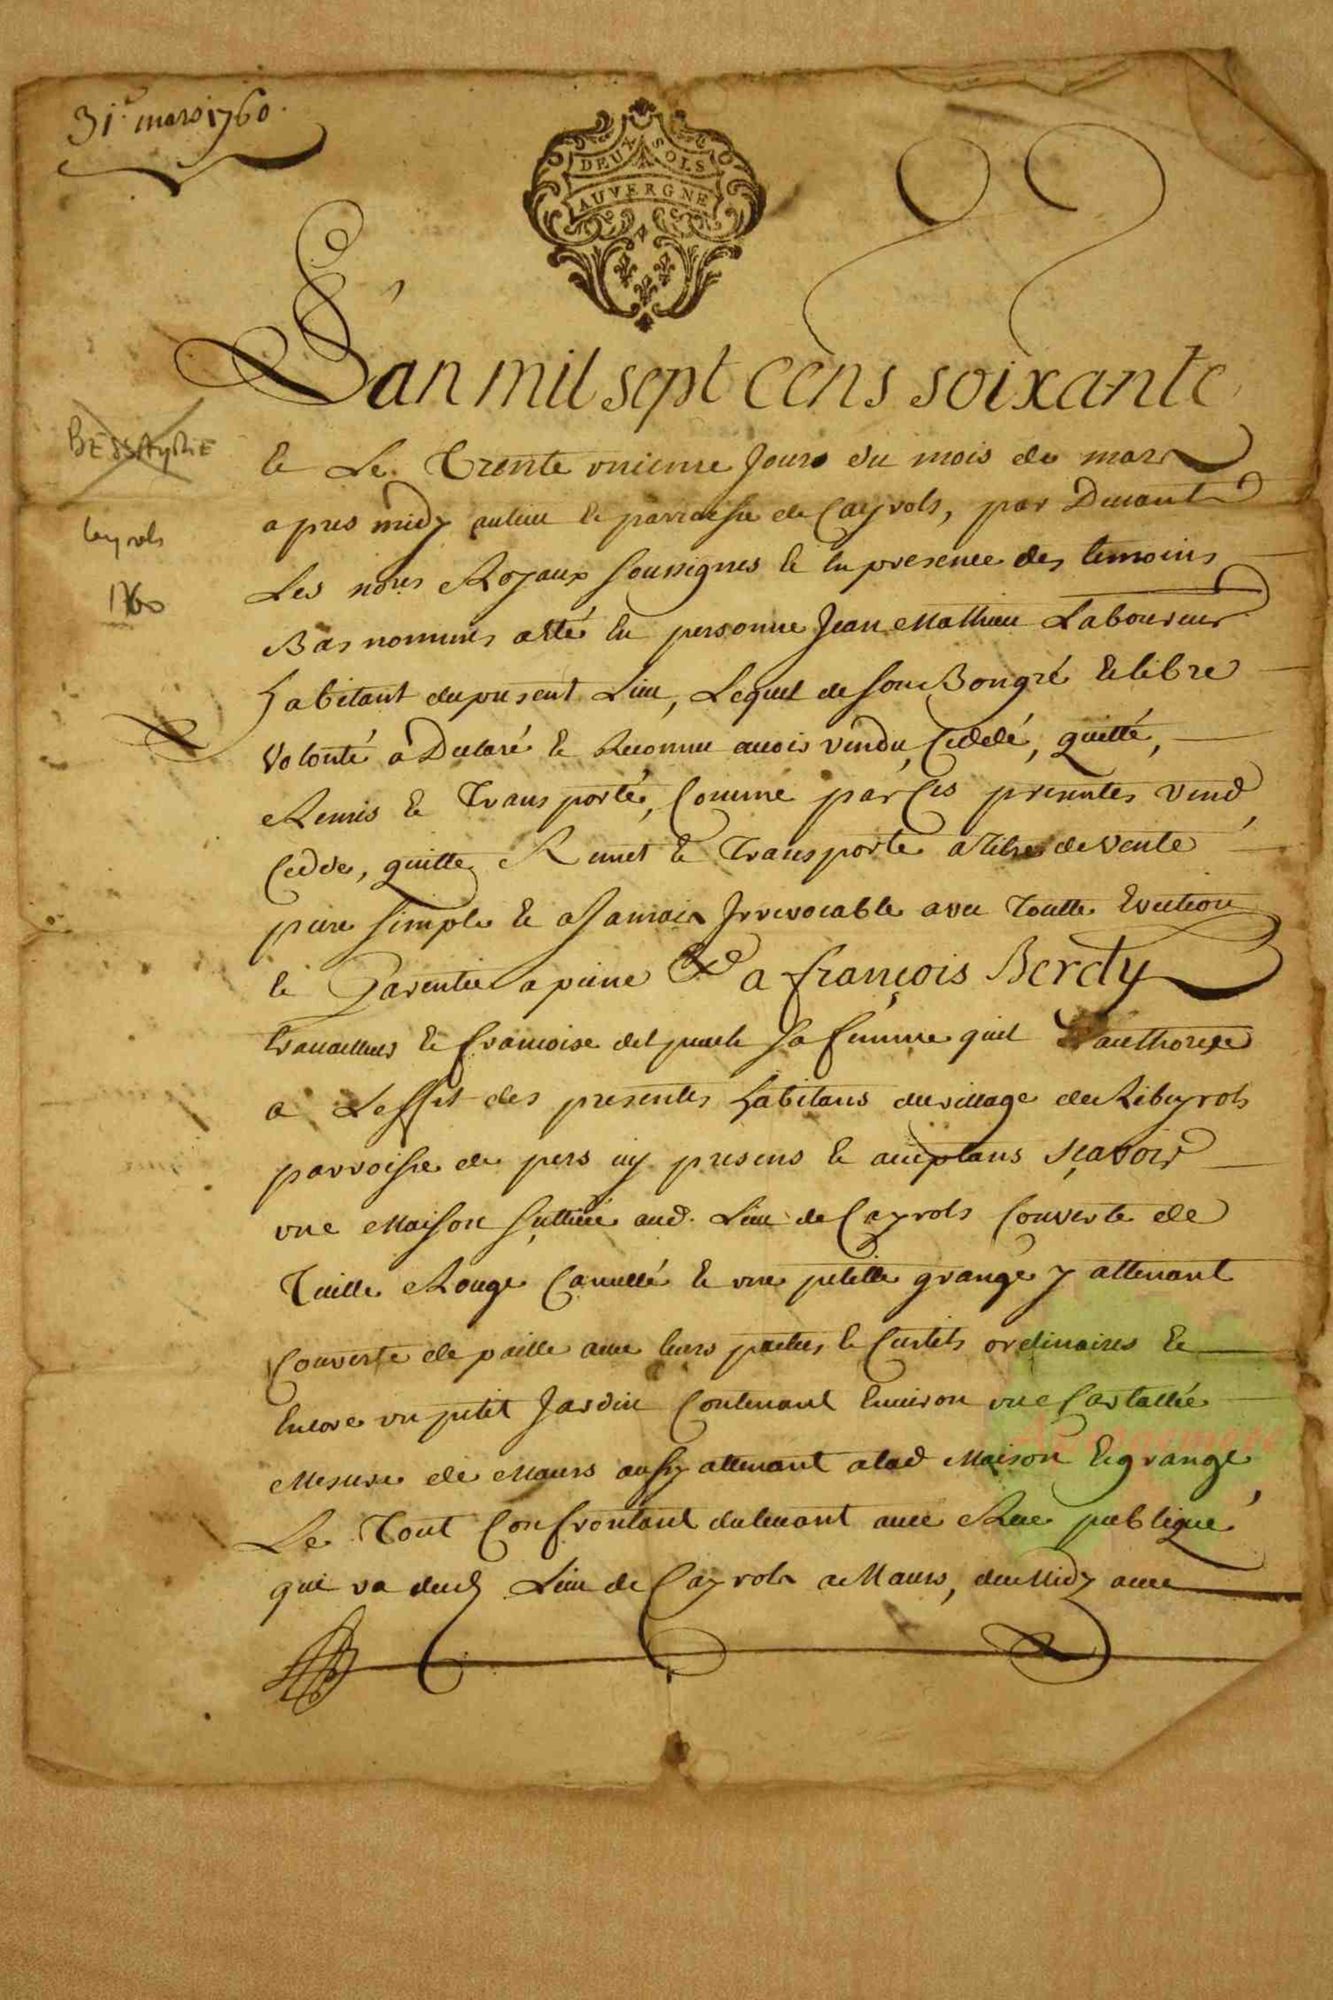 31e mars 1760.
DEUX SOLS
AUVERGNE
L'an mil sept cens soixante
BESSAYRIE
et Le Trente unieme Jour du mois de mars
apres midy au lieu et parroisse de Cayrols, par Devant
Cayrols
Les nores Royaux soussignes et en presence des temoins
1760
Bas nommes a été en personne Jean Mathieu Laboureur
habitant du present Lieu, Lequel de son Bongré et libre
Volonté a Declaré et Reconnu avoir vendu, Ceddé, quitté,
Remis et Transporté, Comme par Ces presentes vend,
Cedde, quitte, Remet et Transporte a titre de vente
pure simple et a Jamais Irrevocable avec Toutte Eviction
et Garentie a peine &a a françois Berety
travailleur et francoise sa femme quil authorise
a Leffet des presentes habitans du village de Ribeyrols
parroisse de pers icy presens et acceptans sçavoir
une Maison scittuée aud. Lieu de Cayrols Couverte de
Tuille Rouge Canullé et une petitte grange y attenant
Couverte de paille avec leurs pactus et Curtils ordinaires et
Encore un petit Jardin Contenant Environ une Cartallée
Mesure de Maurs aussy attenant a lad Maison et grange,
Le Tout Confrontant du levant avec Rue publique
qui va dud Lieu de Cayrols a Maurs, du Midy avec